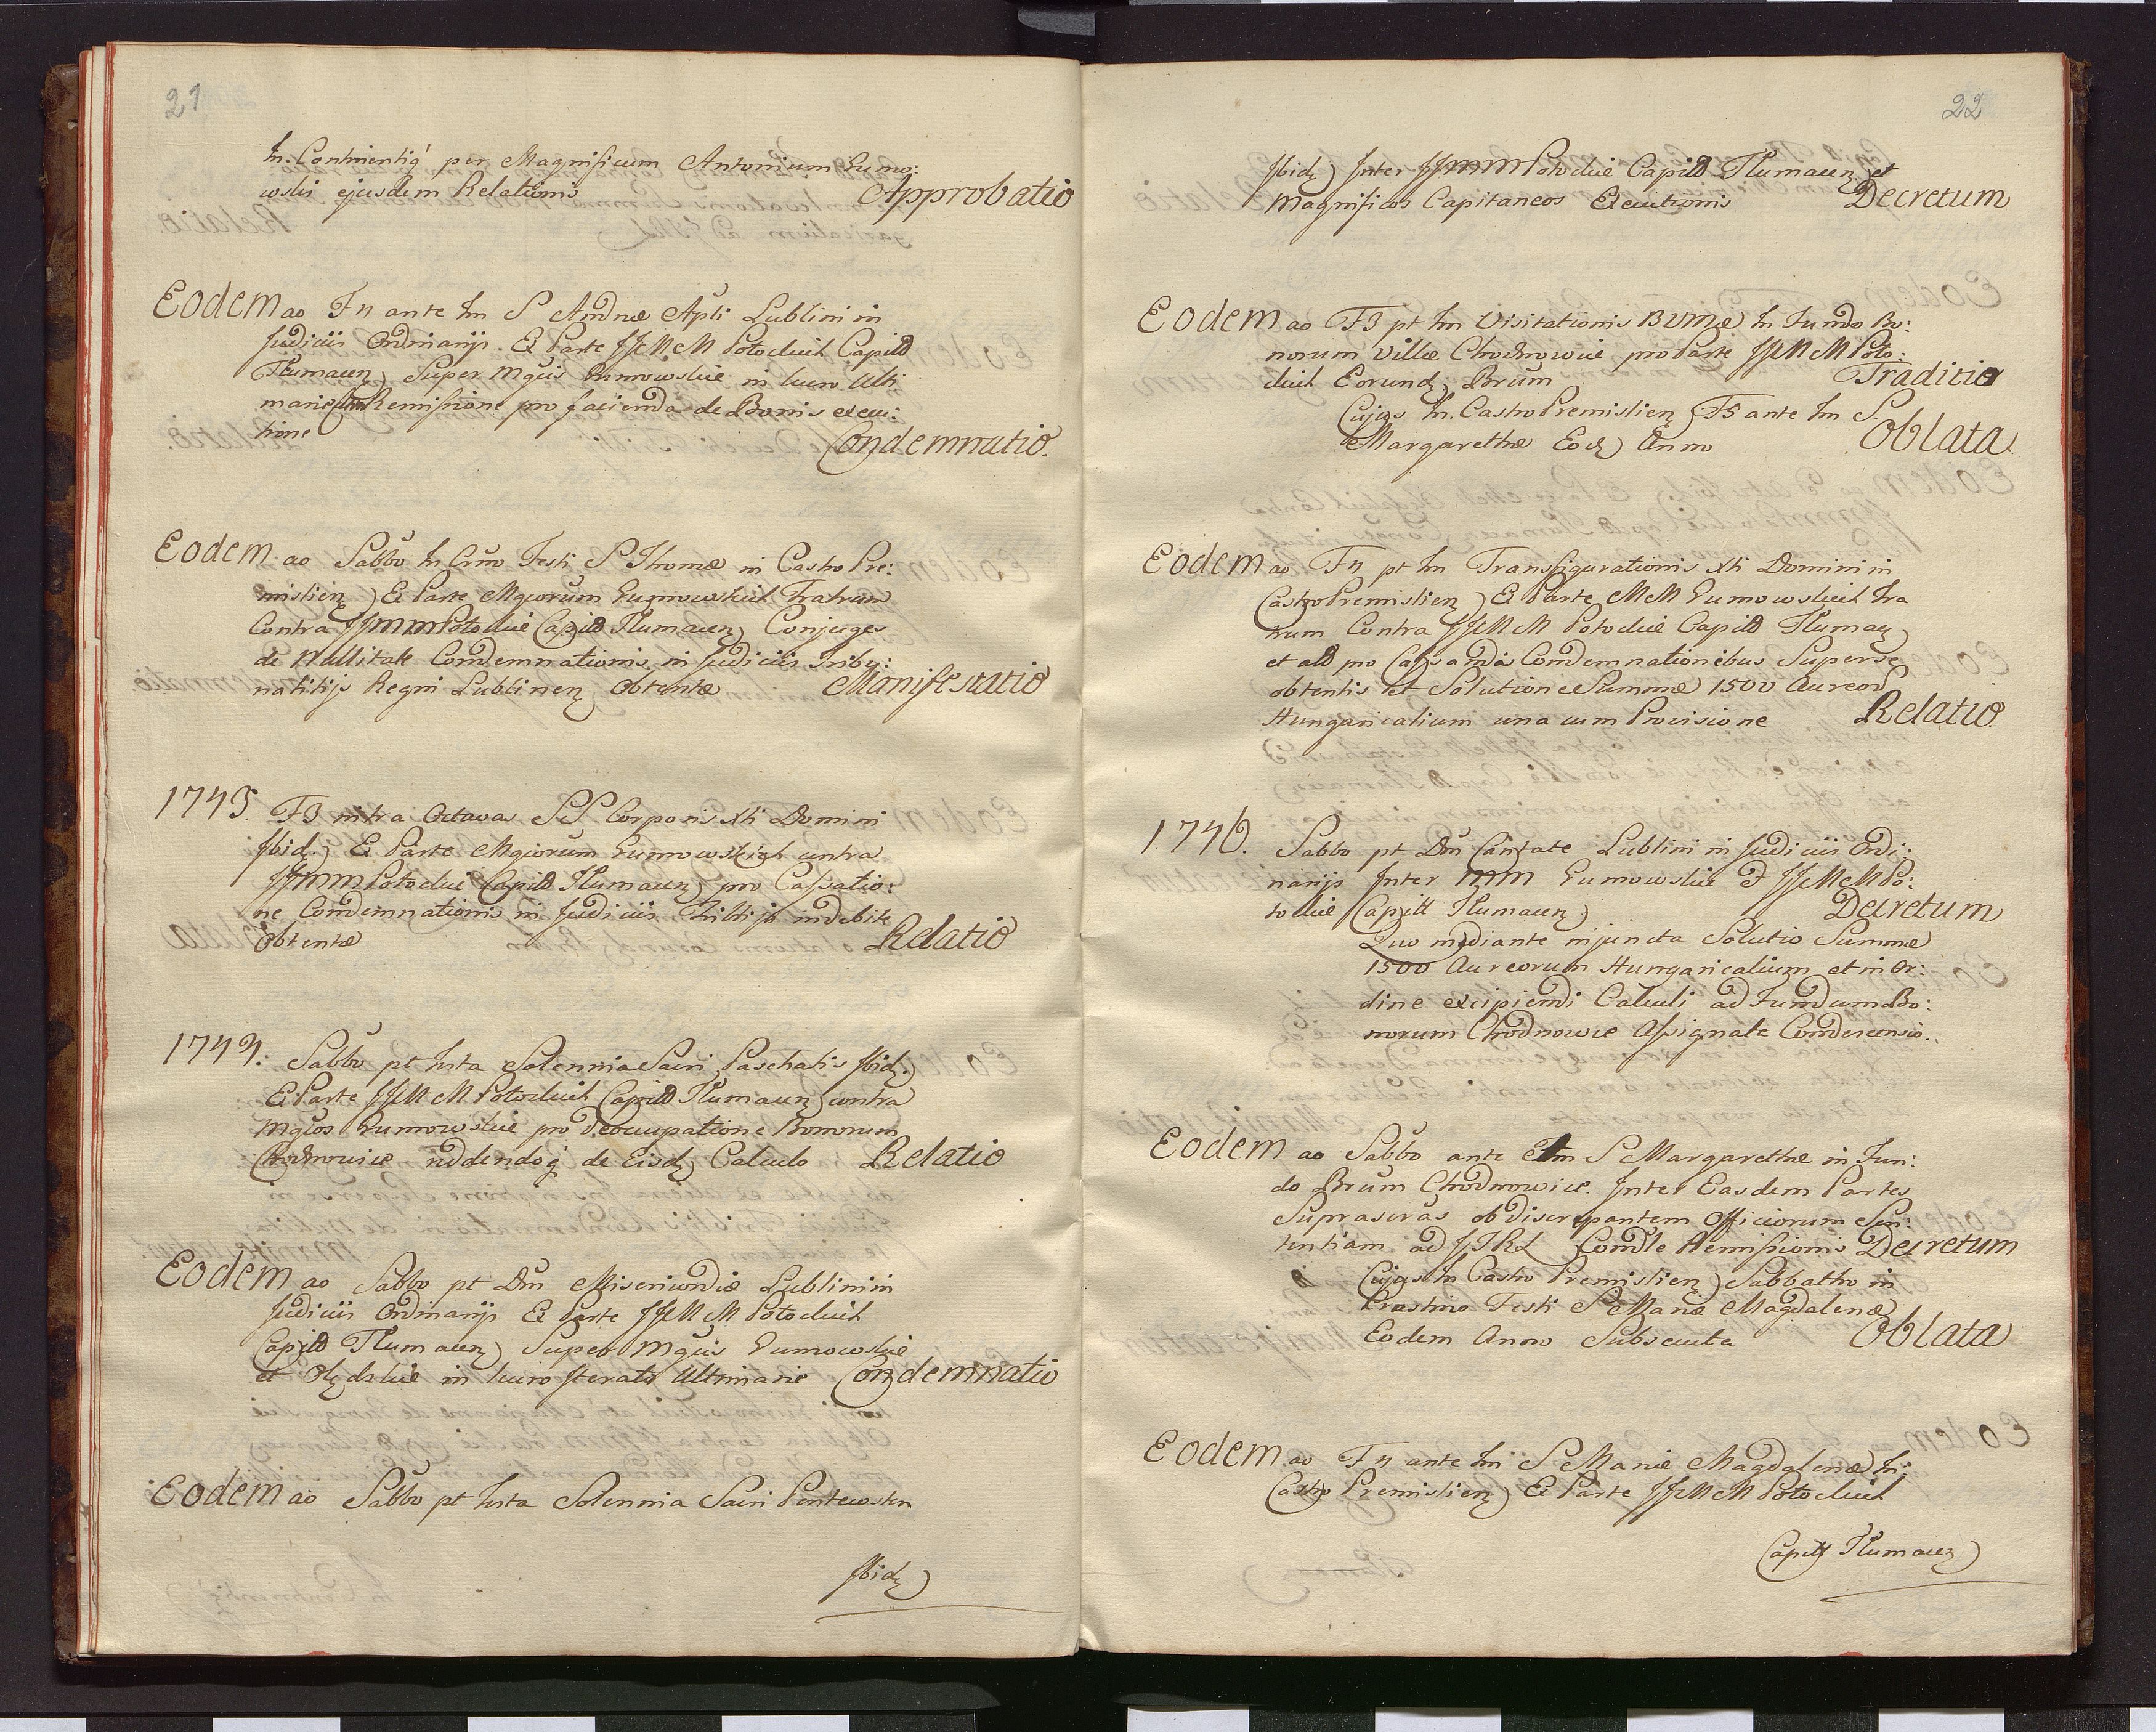 21
In Continentiq́ per Magnificum Antonium Humo:
wski ejusdem Relationis Approbatio
Eodem ao F 4 ante fm S Andreæ Apli Lublini in
Judiciis Ordinarijs. Ex Parte JJMM Potockich Capitd
Tłumacen) Super Mgcis Humowskie in lucro Ulti
marie cum Remissione pro facienda de Bonis execu:
tione Condemnatio.
Eodem ao Sabbo in Crno Festi S Thomæ in Castro Pre:
mislien) Ex Parte Mgcorum Humowskich Fratrum
Contra JJMM Potockie Capitd Tłumacen) Conjuges
de Nullitate Condemnationis in Judiciis Tribu:
natitijs Regni Lublinen obtentæ Manifestatio
1743. F3 intra Octavas SS Corporis Xti Domini
Ibid) Ex Parte Mgcorum Humowskich contra
JJMM Potockie Capitd Tłumacen) pro Cassatio:
ne Condemnationis in Judiciis Tribltijs indebite
obtentæ Relatio
1744: Sabbo pt festa Solennia Sacri Paschatis Ibid.)
Ex Parte JJMM Potockich Capitd Tłumacen) contra
Mgcos Humowskie pro Deoccupatione Bonorum
Chodnowice reddendoq́ de Eisd) Calculo Relatio
Eodem ao Sabbo pt Dm Misericordiæ Lublini in
Judiciis Ordinarijs Ex Parte JJMM Potockich
Capitd Tłumacen) Super Mgcis Humowskie
et Olędzkie in lucro Iterato Ultimarie Condemnatio
Eodem ao Sabbo pt festa Solennia Sacri Pentecosten
Ibid)
22
Ibid) Inter JJMM Potockie Capitd Tłumacen et
Magnificos Capitaneos Executionis Decretum
Eodem ao F3 pt fm Visitationis BVMæ In Fundo Bo:
norum Villæ Chodnowice pro Parte JJMM Poto:
ckich Eorund) Brum Traditio
Cujus In Castro Premislien) F5 ante fm S
Margarethæ Eod) Anno Oblata
Eodem ao F 4 pt fm Transfigurationis Xti Domini in
Castro Premislien) Ex Parte MM Humowskich Fra
trum Contra JJMM Potockie Capitd Tłumac)
et ald pro Cassandis Condemnationibus Super se
obtentis et Solutione Summæ 1500 Aureor
Hungaricalium una cum Provisione Relatio
1746. Sabbo pt Dm Cantate Lublini in Judiciis Ordi:
narijs Inter MM Humowskie & JJMM Po:
tockie Capitt Tłumacen) Decretum
Quo mediante injuncta Solutio Summæ
1500 Aureorum Hungaricalium et in Or:
dine excipiendi Calculi ad Fundum Bo:
norum Chodnowice Assignatæ Condescensio.
Eodem ao Sabbo ante fm S Margarethæ in Fun:
do Brum Chodnowice. Inter Easdem Partes
Suprascras ob discrepantem Officiorum Sen:
tentiam ad JTRL Condle Remissionis Decretum
Cujus In Castro Premislien) Sabbatho in
Crastino Festi S Mariæ Magdalenæ
Eodem Anno Subsecuta Oblata
Eodem ao F 4 ante fm S Mariæ Magdalenæ In
Castro Premislien) Ex Parte JJMM Potockich
Capitt Tłumacen)